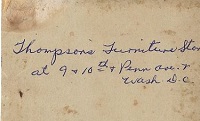 Thompson's Furniture Stor
at 9 & 10th & Penn ave. N
Wash D.C.